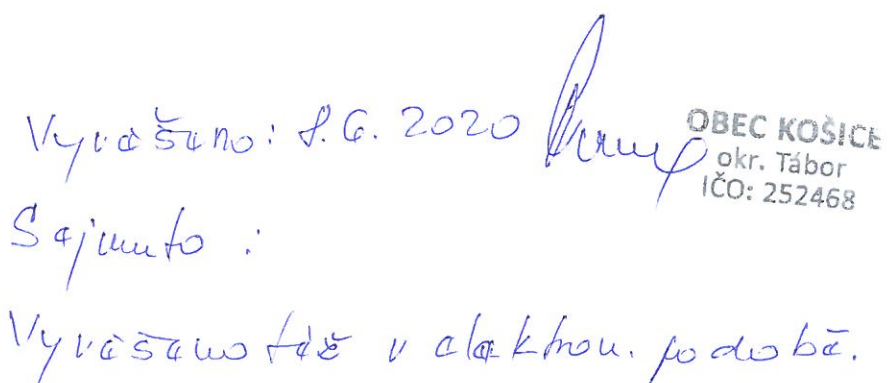 Vyvěšeno: 8.6. 2020
OBEC KOŠICE
okr. Tábor
IČO: 252468
Sejmuto :
Vyvěšeno též v elektron. podobě.